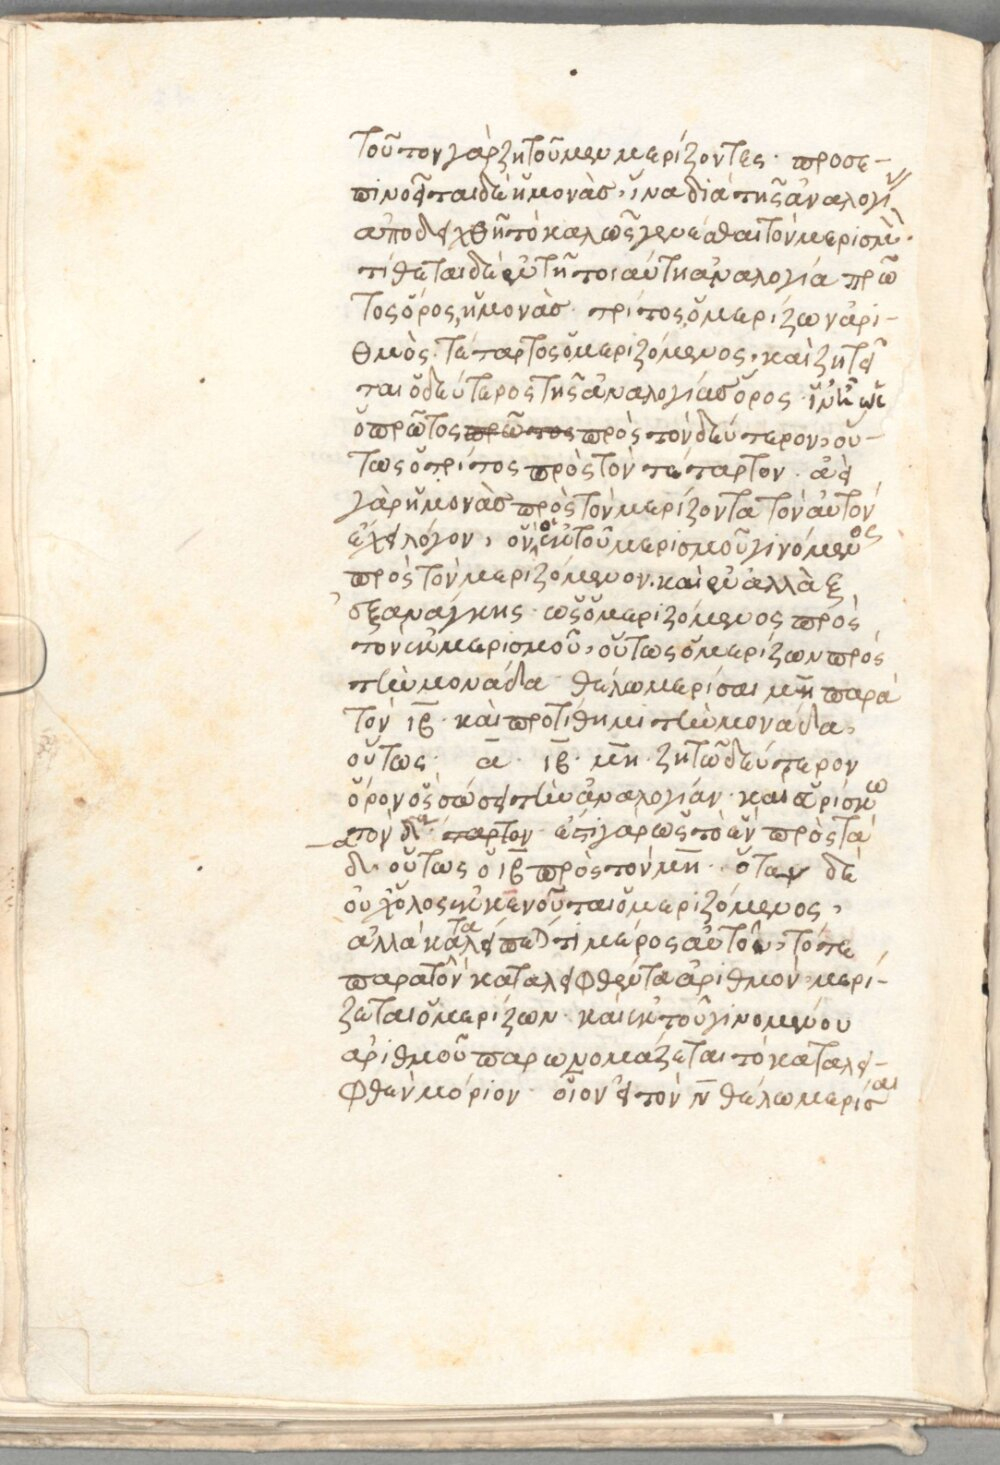 τοῦτον γὰρ ζητοῦμεν μερίζοντες · προσε-
πινοεῖται δὲ ἡ μονὰς, ἵνα διὰ τῆς ἀναλογί
ἀποδειχθῇ τὸ καλῶς γενέσθαι τὸν μερισμὸν ·
τίθεται δὲ ἐν τῇ τοιαύτῃ ἀναλογία πρῶ
τος ὅρος, ἡ μονὰς · τρίτος ὁ μερίζων ἀρι-
θμὸς · τέταρτος ὁ μεριζόμενος, καὶ ζητεῖ
ται ὁ δεύτερος τῆς ἀναλογίας ὅρος ·
ὁ πρῶτος πρῶτος πρὸς τὸν δεύτερον, οὕ-
τως ὁ τρίτος πρὸς τὸν τέταρτον · ἀεὶ
γὰρ ἡ μονὰς πρὸς τὸν μερίζοντα τὸν αὐτὸν
ἔχει λόγον, ὃν ὁ ἐκ τοῦ μερισμοῦ γινόμενος
πρὸς τὸν μεριζόμενον · καὶ ἐναλλὰξ
ἐξανάγκης · ὡς ὁ μεριζόμενος πρὸς
τὸν ἐκ μερισμοῦ, οὕτως ὁ μερίζων πρὸς
τὴν μονάδα · θέλω μερίσαι μη παρὰ
τὸν ιβ · καὶ προτίθημι τὴν μονάδα,
οὕτως · α · ιβ · μη · ζητῶ δεύτερον
ὅρον ὃς σώσει τὴν ἀναλογίαν · καὶ εὑρίσκω
τὸν δ · τέταρτον · ἐπεὶ γὰρ ὡς τὸ ἓν πρὸς τὰ
δ · οὕτως ὁ ιβ πρὸς τὸν μη · ὅταν δὲ
οὐχ ὅλος ἐκκενοῦται ὁ μεριζόμενος,
ἀλλὰ καταλείπεταί τι μέρος αὐτοῦ, τότε
παρὰ τὸν καταλειφθέντα ἀριθμὸν μερί-
ζεται ὁ μερίζων · καὶ ἐκ τοῦ γινομένου
ἀριθμοῦ παρωνομάζεται τὸ καταλει-
φθὲν μόριον · οἷον εἰ τὸν ν θέλω μερίσαι